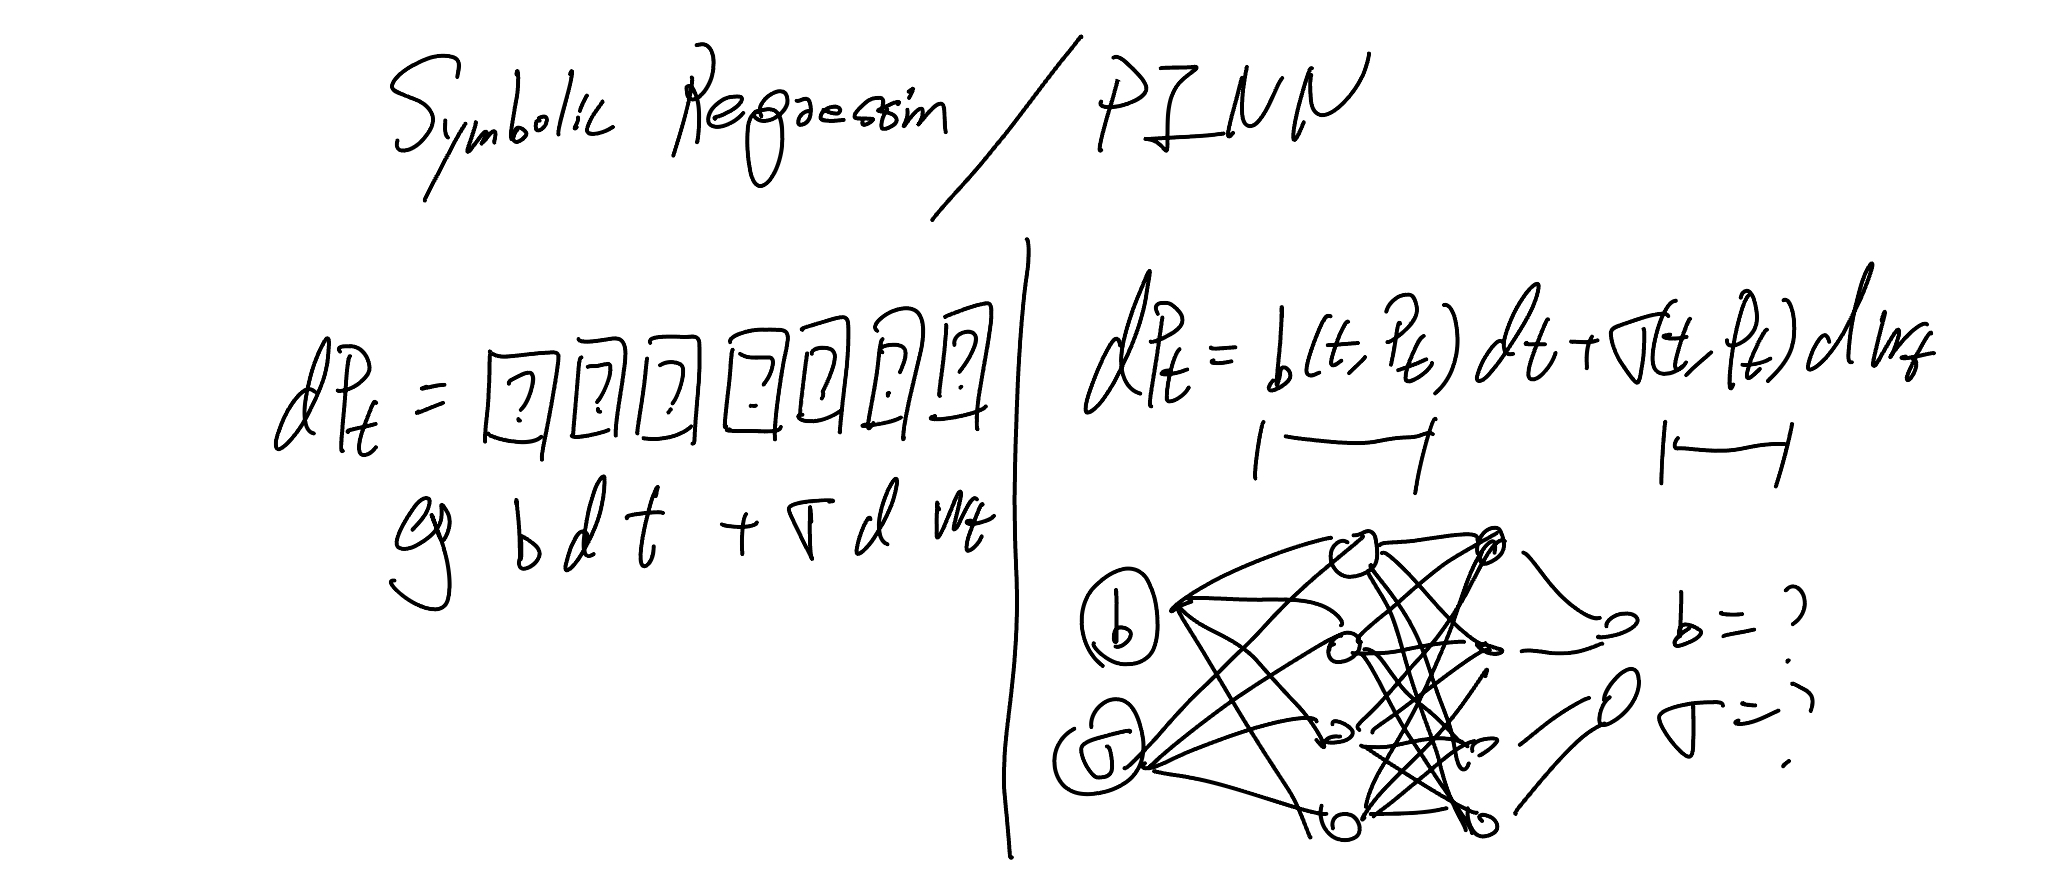 Symbolic Regression / PINN
dPt = ? ? ? ? ? ? ?
eg b d t + σ d Wt
dPt = b(t, Pt) dt + σ(t, Pt) dWt
b
σ
b = ?
σ = ?